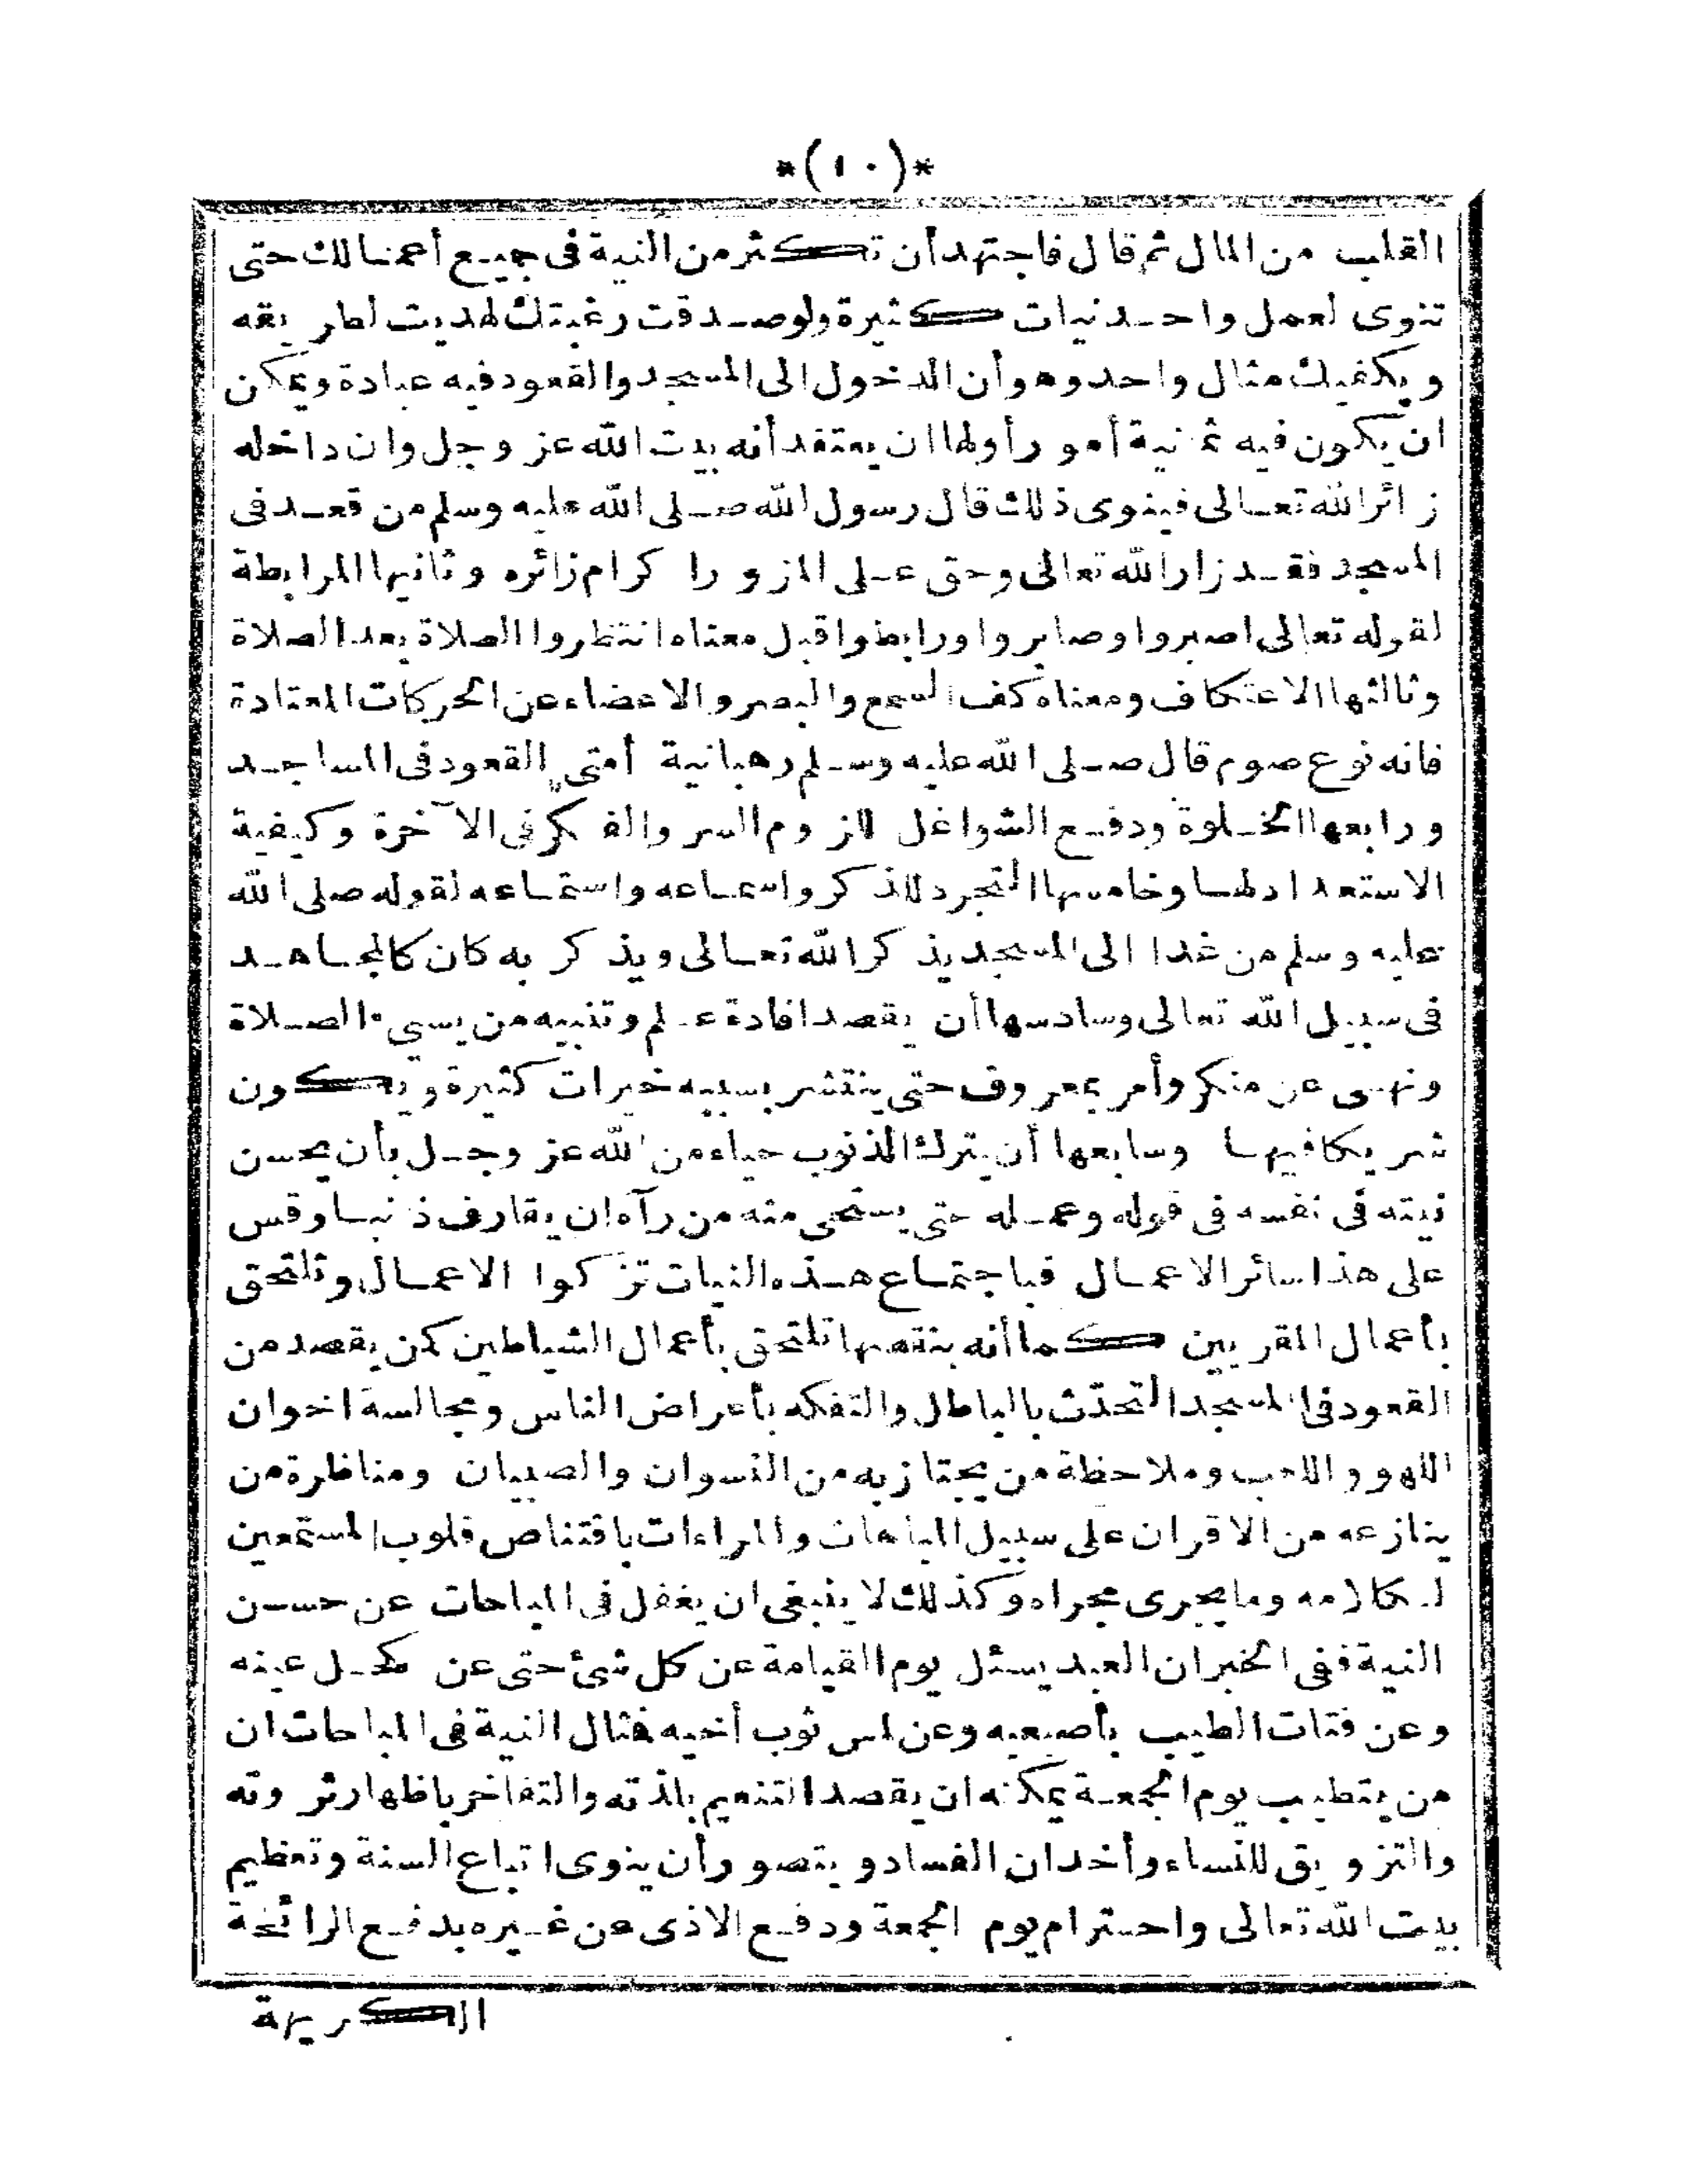 *(١٠)*
القلب من المال ثم قال فاجتهد أن تكثر من النية فى جميع أعمالك حتى
تنوى لعمل واحد نيات كثيرة ولو صدقت رغبتك لهديت لطريقه
ويكفيك مثال واحد وهو أن الدخول الى المسجد والقعود فيه عبادة ويمكن
ان يكون فيه ثمانية أمور أولها ان يعتقد أنه بيت الله عز وجل وان داخله
زائر الله تعالى فينوى ذلك قال رسول الله صلى الله عليه وسلم من قعد فى
المسجد فقد زار الله تعالى وحق على المزور اكرام زائره وثانيها المرابطة
لقوله تعالى اصبروا وصابروا ورابطوا قيل معناه انتظروا الصلاة بعد الصلاة
وثالثها الاعتكاف ومعناه كف السمع والبصر والاعضاء عن الحركات المعتادة
فانه نوع صوم قال صلى الله عليه وسلم رهبانية أمتى القعود فى المساجد
ورابعها الخلوة ودفع الشواغل للزوم السر والفكر فى الآخرة وكيفية
الاستعداد لها وخامسها التجرد للذكر واسماعه واستماعه لقوله صلى الله
عليه وسلم من غدا الى المسجد يذكر الله تعالى ويذكر به كان كالمجاهد
فى سبيل الله تعالى وسادسها أن يقصد افادة علم وتنبيه من يسىء الصلاة
ونهى عن منكر وأمر بمعروف حتى ينتشر بسببه خيرات كثيرة ويكون
شريكا فيها وسابعها أن يترك الذنوب حياء من الله عز وجل بأن يحسن
نيته فى نفسه فى قوله وعمله حتى يستحى منه من رآه ان يقارف ذنبا وقس
على هذا سائر الاعمال فباجتماع هذه النيات تزكوا الاعمال وتلتحق
بأعمال المقربين كما أنه بنقصها تلتحق بأعمال الشياطين كمن يقصد من
القعود فى المسجد التحدّث بالباطل والتفكه بأعراض الناس ومجالسة اخوان
اللهو واللعب وملاحظة من يجتاز به من النسوان والصبيان ومناظرة من
ينازعه من الاقران على سبيل المباهات والمراءات باقتناص قلوب المستمعين
لكلامه وما يجرى مجراه وكذلك لا ينبغى ان يغفل فى المباحات عن حسن
النية ففى الخبر ان العبد يسئل يوم القيامة عن كل شئ حتى عن كحل عينه
وعن فتات الطيب بأصبعيه وعن لمس ثوب أخيه فمثال النية فى المباحات ان
من يتطيب يوم الجمعة يمكنه ان يقصد التنعيم بلذته والتفاخر باظهار ثروته
والتزويق للنساء وأخدان الفساد ويتصور أن ينوى اتباع السنة وتعظيم
بيت الله تعالى واحترام يوم الجمعة ودفع الاذى عن غيره بدفع الرائحة
الكريهة